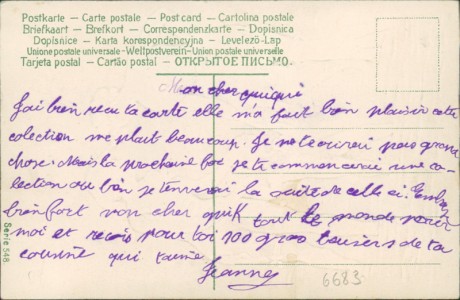 Postkarte - Carte postale - Post card - Cartolina postale
Briefkaart - Brefkort - Correspondenzkarte - Dopisnica
Dopisnice - Karta korespondencyjna - Levelező-Lap
Union postale universelle - Weltpostverein - Union postale universelle
Tarjeta postal - Cartão postal - ОТКРЫТОЕ ПИСЬМО.
Mon cher quiqui
J'ai bien recu ta carte elle m'a fait bien plaisir cette
colection me plait beaucoup. Je ne t'ecrirai pas grand
chose. Mais la prochaine foi je te commencerai une co-
lection ou bien je t'enverai la suite de celle ci. Embra
bien fort mon cher quik tout le monde pour
moi et recois pour toi 100 000 baisers de ta
cousine qui t'aime
Jeanne
Serie 548
6683